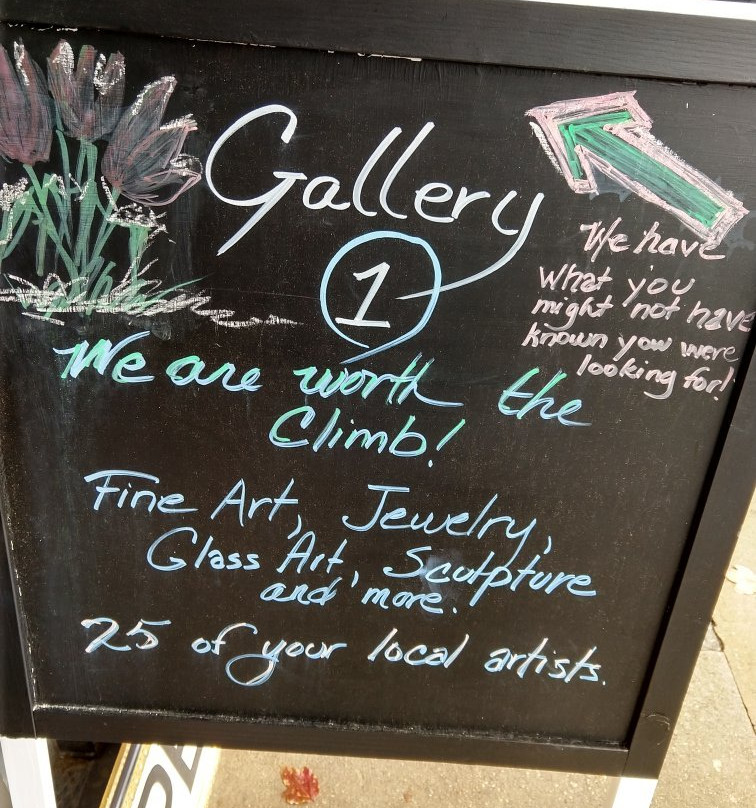 Gallery
1
We have
what you
might not have
known you were
looking for!
We are worth the
Climb!
Fine Art, Jewelry,
Glass Art, Sculpture
and more.
25 of your local artists.